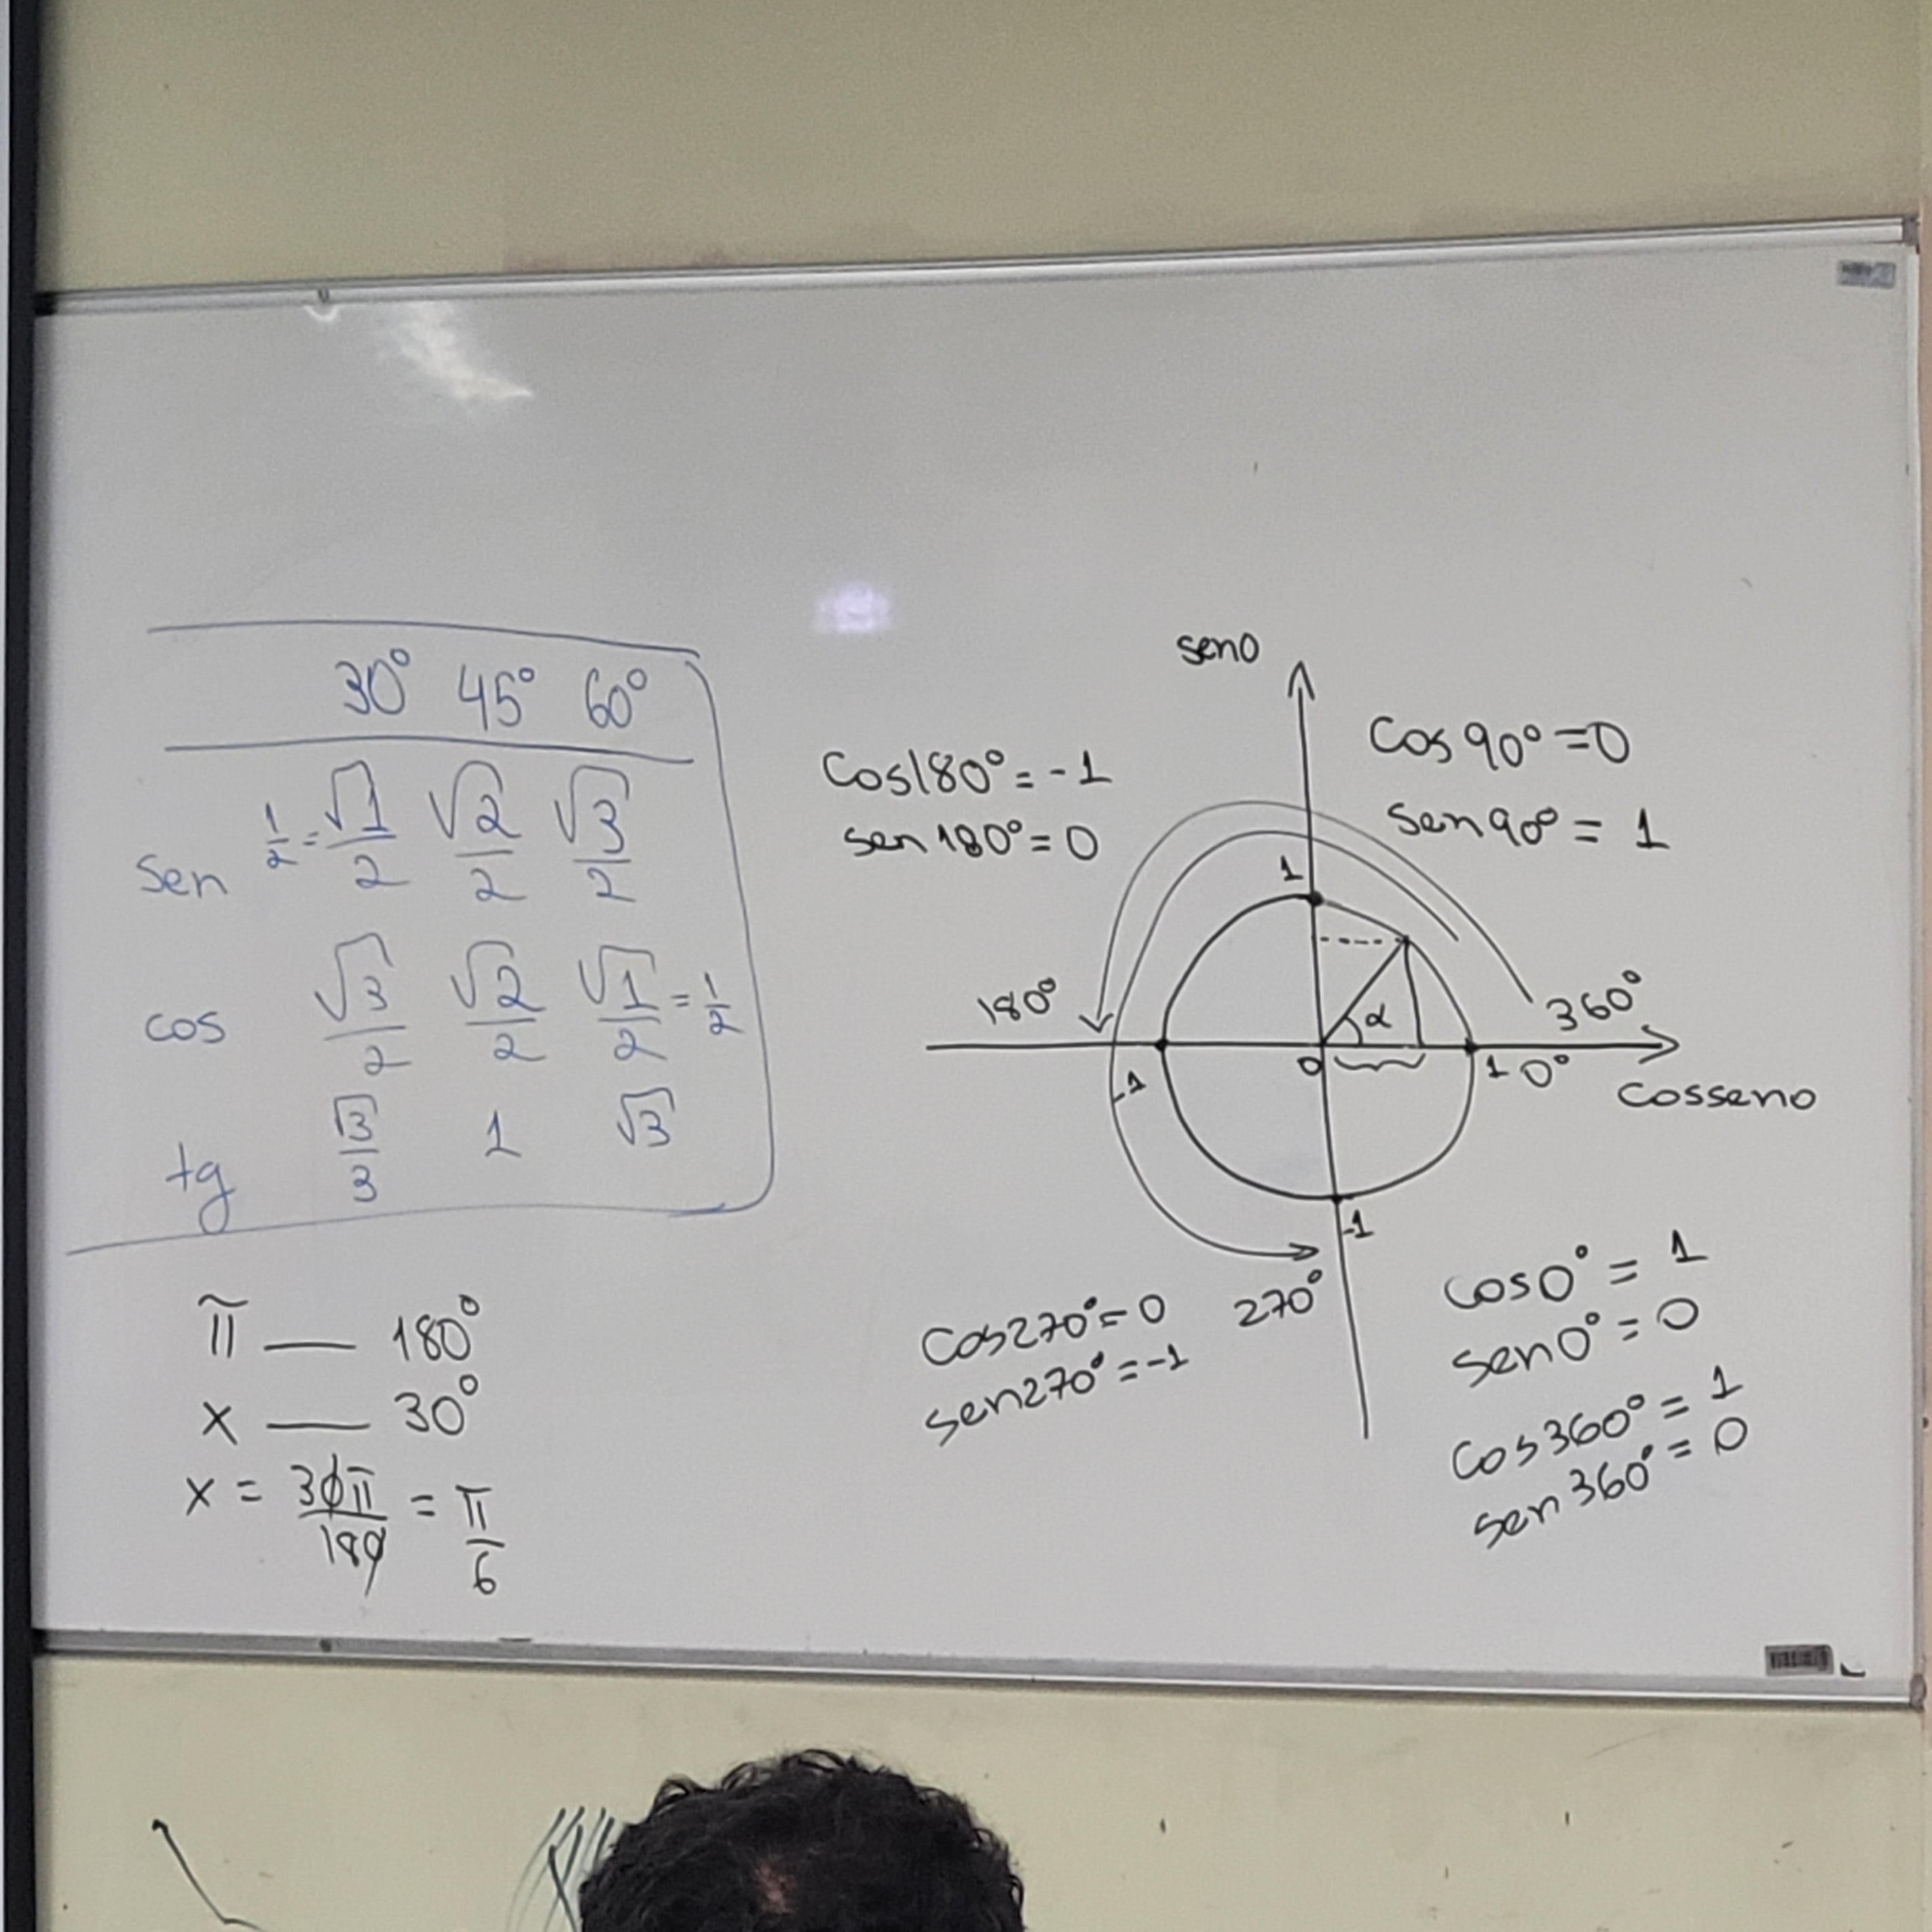 30° 45° 60°
sen 1/2 = √1/2 √2/2 √3/2
cos √3/2 √2/2 √1/2 = 1/2
tg √3/3 1 √3
π — 180°
x — 30°
x = 30π/180 = π/6
seno
cos 180° = -1
sen 180° = 0
cos 90° = 0
sen 90° = 1
1
180°
360°
α
-1
0
1 0°
cosseno
-1
270°
cos 270° = 0
sen 270° = -1
cos 0° = 1
sen 0° = 0
cos 360° = 1
sen 360° = 0